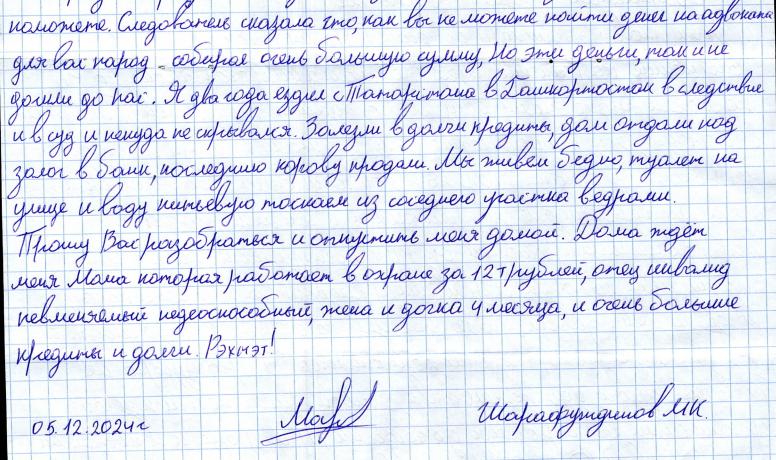 поможете. Следователь сказала что, как вы не можете найти денег на адвоката
для вас народ собирал очень большую сумму, Но эти деньги, так и не
дошли до нас. Я два года ездил с Татарстана в Башкортостан в следствие
и в суд и никуда не скрывался. Залезли в долги кредиты, дом отдали под
залог в банк, последнюю корову продали. Мы живем бедно, туалет на
улице и воду питьевую тоскаем из соседнего участка ведрами.
Прошу Вас разобраться и отпустить меня домой. Дома ждёт
меня Мама которая работает в охране за 12 т рублей, отец инвалид
невменяемый недеоспособный, жена и дочка 4 месяца, и очень большие
кредиты и долги. Рэхмэт!
05.12.2024г Шарафутдинов М.К.